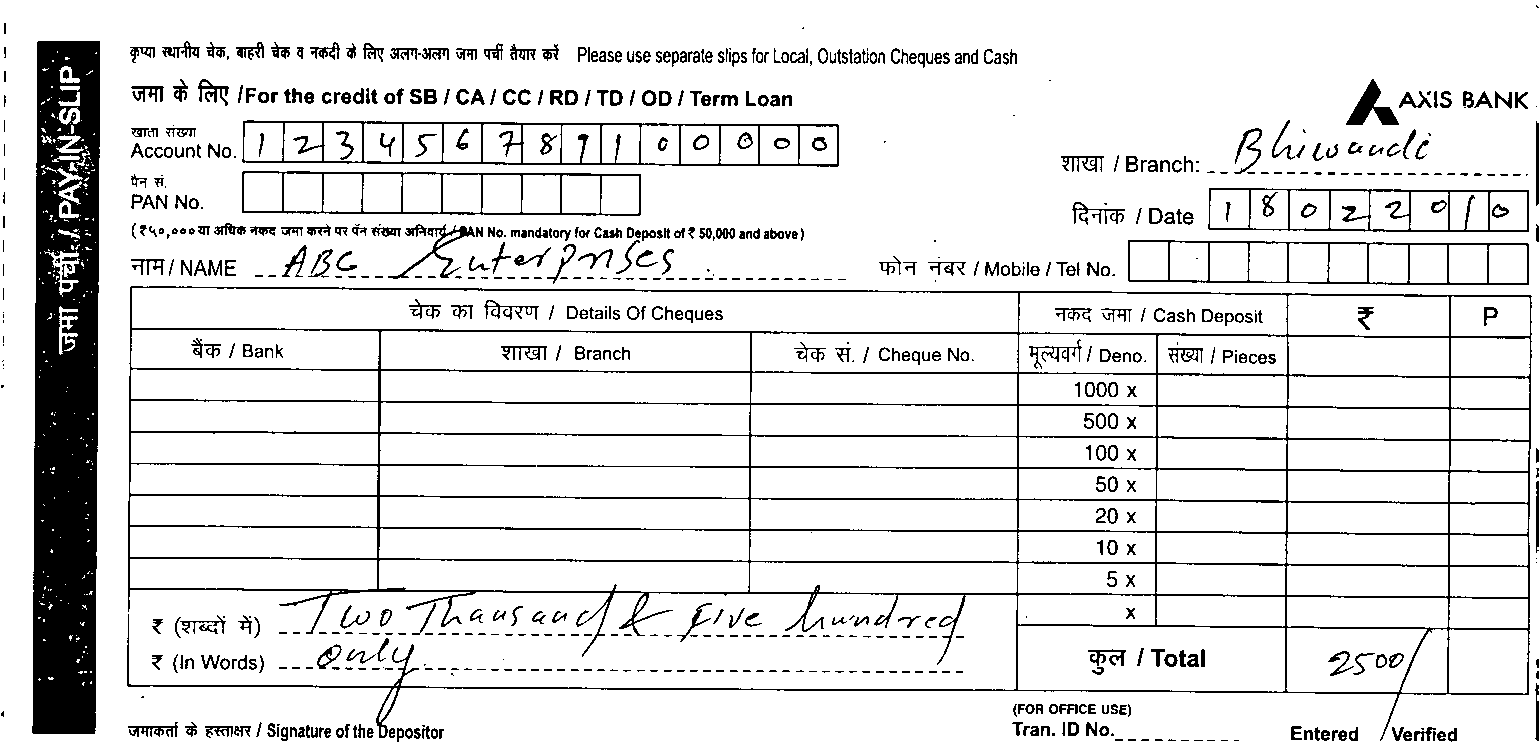 कृप्या स्थानीय चेक, बाहरी चेक व नकदी के लिए अलग-अलग जमा पर्ची तैयार करें Please use separate slips for Local, Outstation Cheques and Cash
जमा पर्ची / PAY-IN-SLIP
जमा के लिए /For the credit of SB / CA / CC / RD / TD / OD / Term Loan
AXIS BANK
खाता संख्या
Account No. 1 2 3 4 5 6 7 8 9 1 0 0 0 0 0
शाखा / Branch: Bhiwandi
पैन सं.
PAN No.
दिनांक / Date 1 8 0 2 2 0 1 0
(₹५०,००० या अधिक नकद जमा करने पर पॅन संख्या अनिवार्य / PAN No. mandatory for Cash Deposit of ₹ 50,000 and above)
नाम / NAME ABC Enterprises
फोन नंबर / Mobile / Tel No.
चेक का विवरण / Details Of Cheques नकद जमा / Cash Deposit ₹ P
बैंक / Bank शाखा / Branch चेक सं. / Cheque No. मूल्यवर्ग / Deno. संख्या / Pieces
1000 x
500 x
100 x
50 x
20 x
10 x
5 x
x
₹ (शब्दों में) Two Thousand & Five hundred
₹ (In Words) only
कुल / Total 2500/
जमाकर्ता के हस्ताक्षर / Signature of the Depositor
(FOR OFFICE USE)
Tran. ID No. Entered / Verified